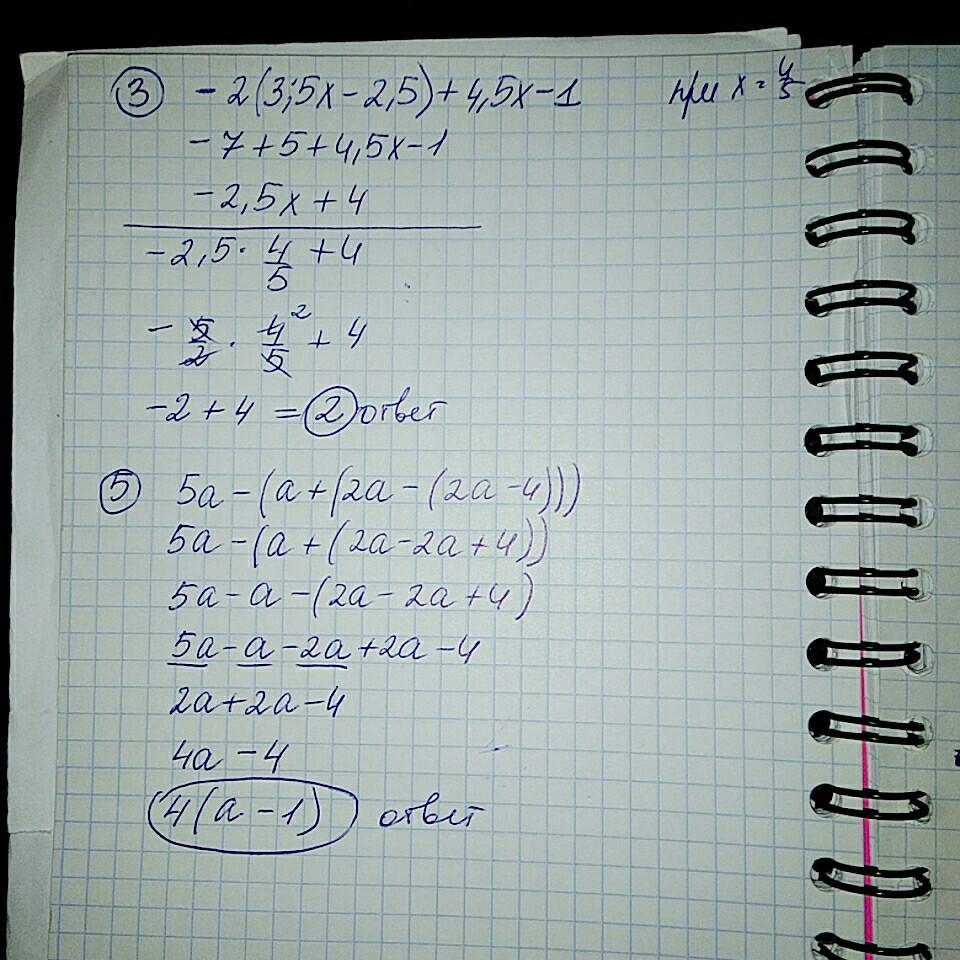 ③ - 2(3,5x - 2,5) + 4,5x - 1 при x = 4/5
- 7 + 5 + 4,5x - 1
- 2,5x + 4
- 2,5 · 4/5 + 4
- 5/2 · 4²/5 + 4
- 2 + 4 = ② ответ
⑤ 5a - (a + (2a - (2a - 4)))
5a - (a + (2a - 2a + 4))
5a - a - (2a - 2a + 4)
5a - a - 2a + 2a - 4
2a + 2a - 4
4a - 4
4(a - 1) ответ